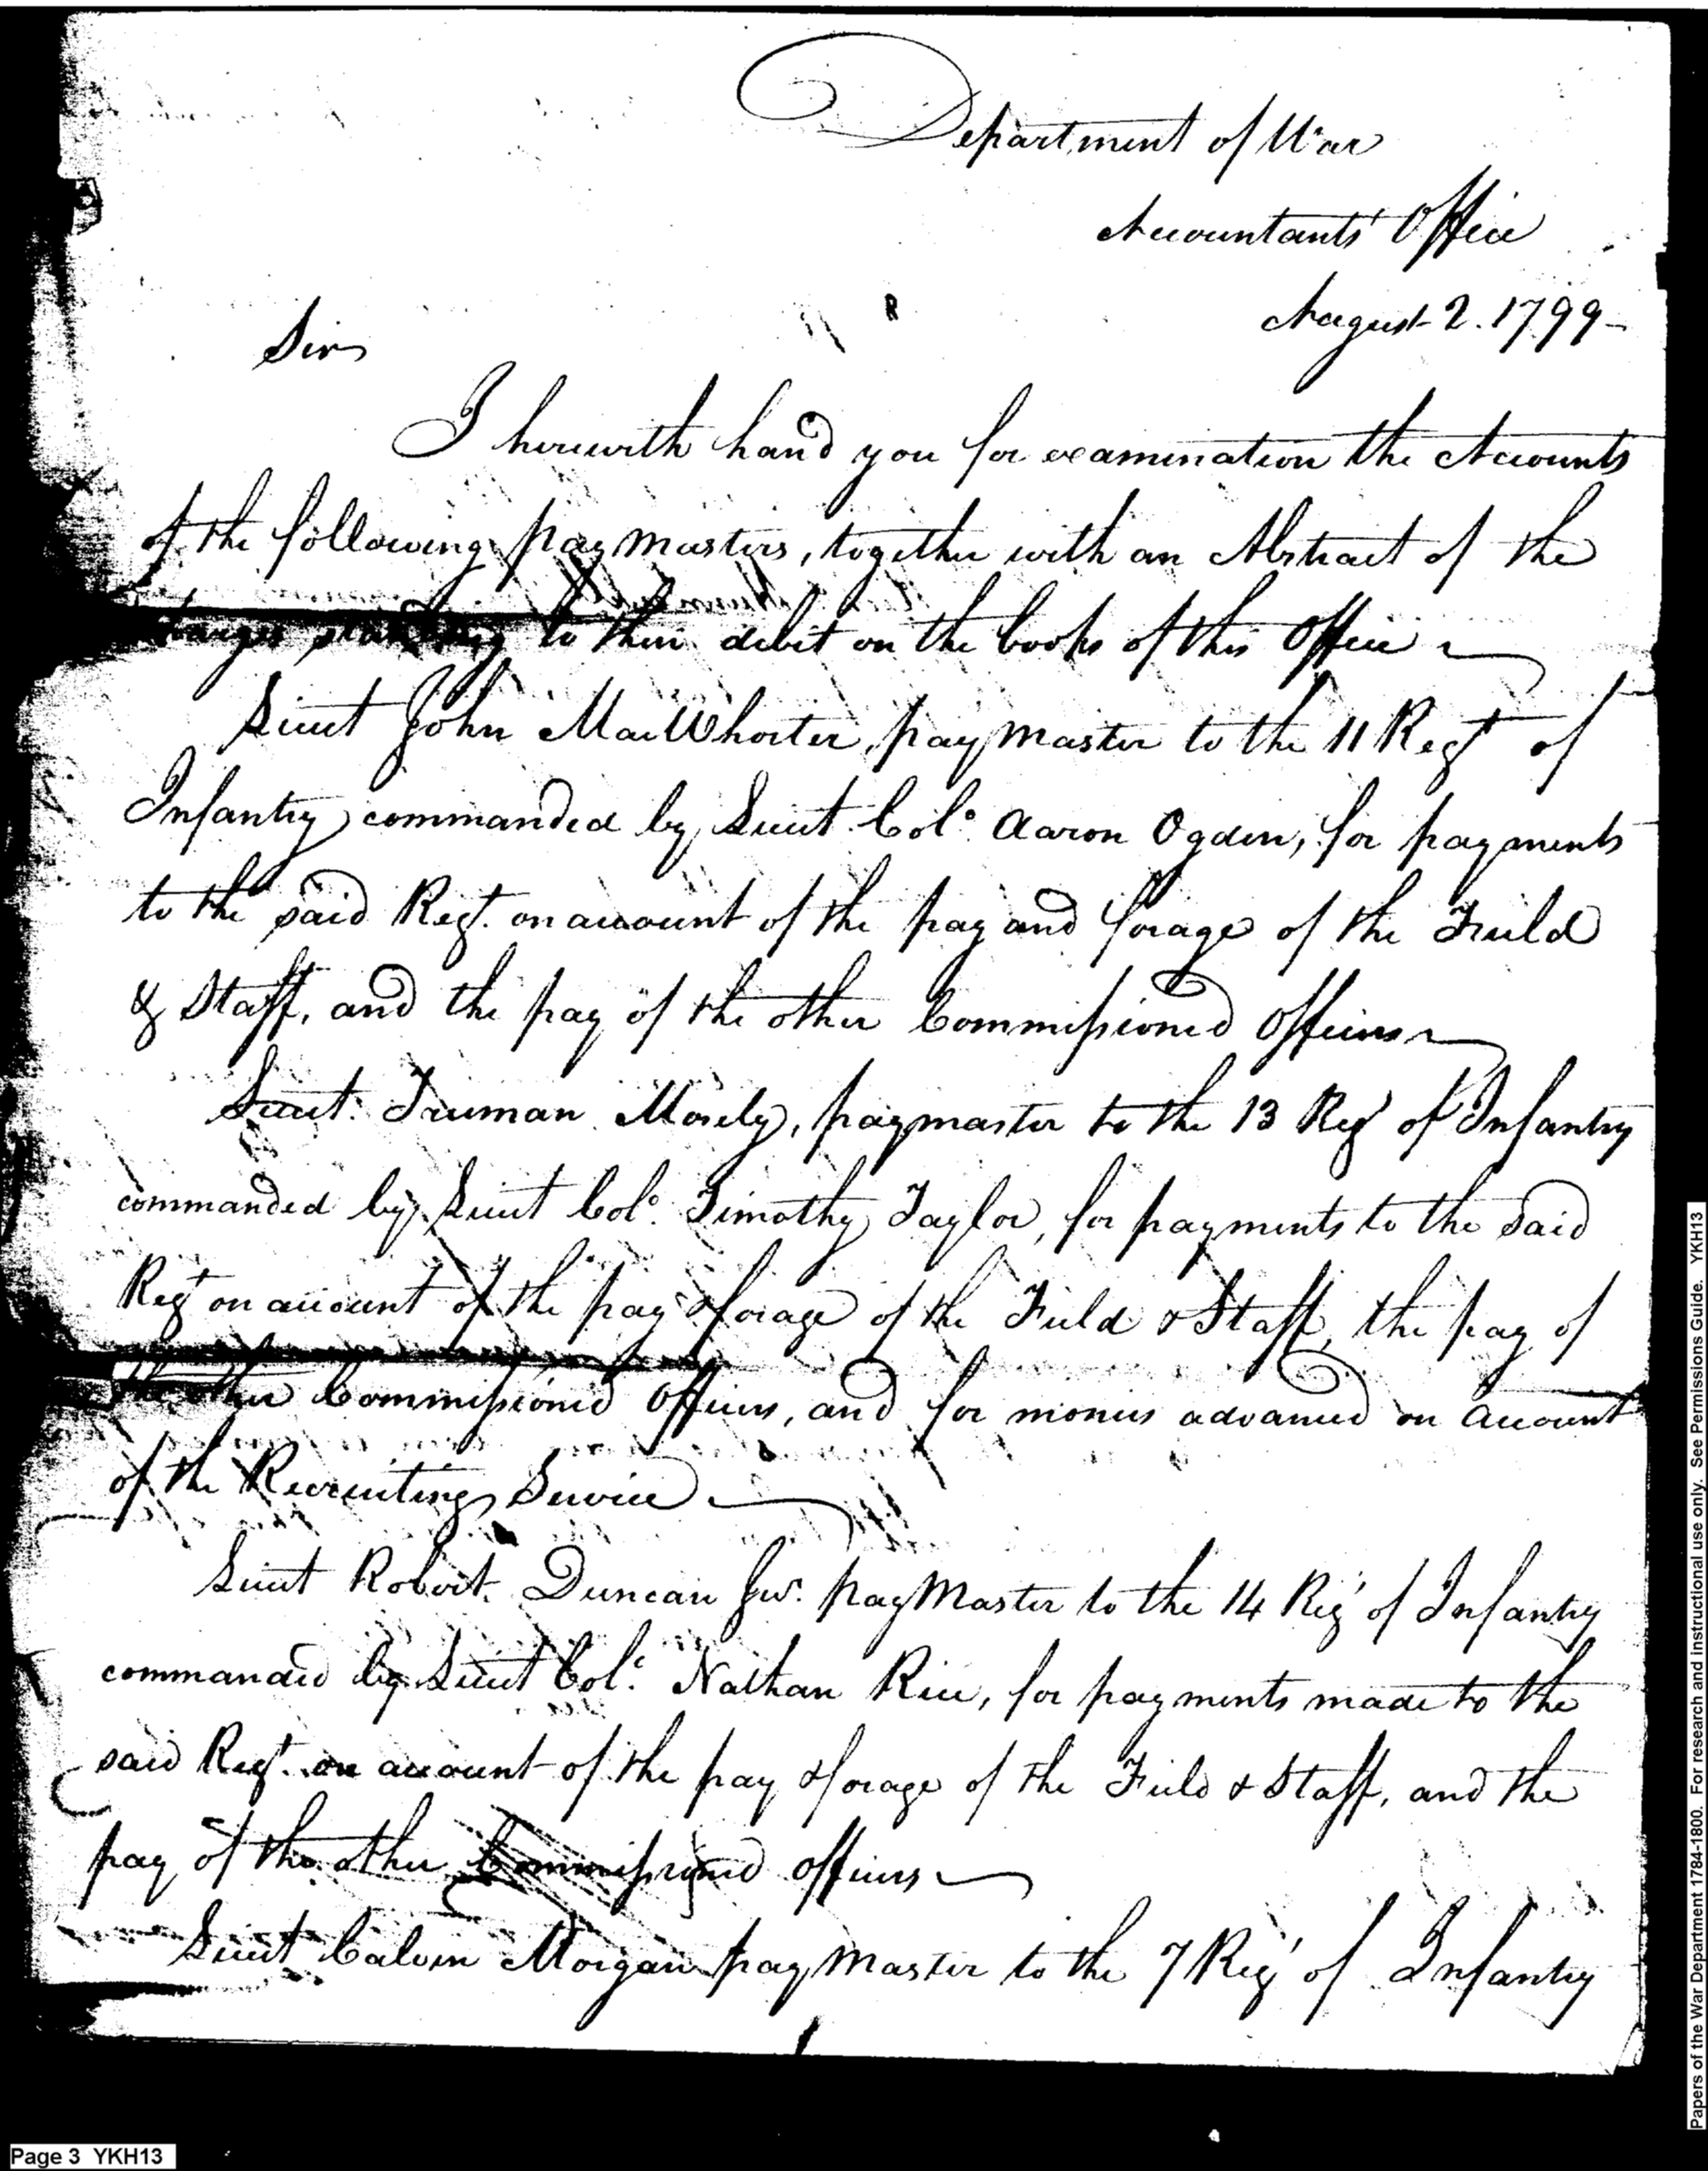 Department of War
Accountants' Office
August 2. 1799-
Sir
I herewith hand you for examination the Accounts
of the following pay Masters, together with an Abstract of the
charges standing to their debit on the books of this Office
Lieut John MacWhorter, pay Master to the 11 Regt of
Infantry commanded by Lieut. Colo. Aaron Ogden, for payments
to the said Regt. on account of the pay and forage of the Field
& Staff, and the pay of the other Commissioned Officers
Lieut. Truman Mosely, paymaster to the 13 Regt of Infantry
commanded by Lieut Colo. Timothy Taylor, for payments to the said
Regt on account of the pay & forage of the Field & Staff, the pay of
the other Commissioned Officers, and for monies advanced on account
of the Recruiting Service
Lieut Robert Duncan Junr. pay Master to the 14 Regt of Infantry
commanded by Lieut Colo. Nathan Rice, for payments made to the
said Regt. on account of the pay & forage of the Field & Staff, and the
pay of the other Commissioned officers
Lieut Calvin Morgan pay Master to the 7 Regt of Infantry
Page 3 YKH13
Papers of the War Department 1784-1800. For research and instructional use only. See Permissions Guide. YKH13